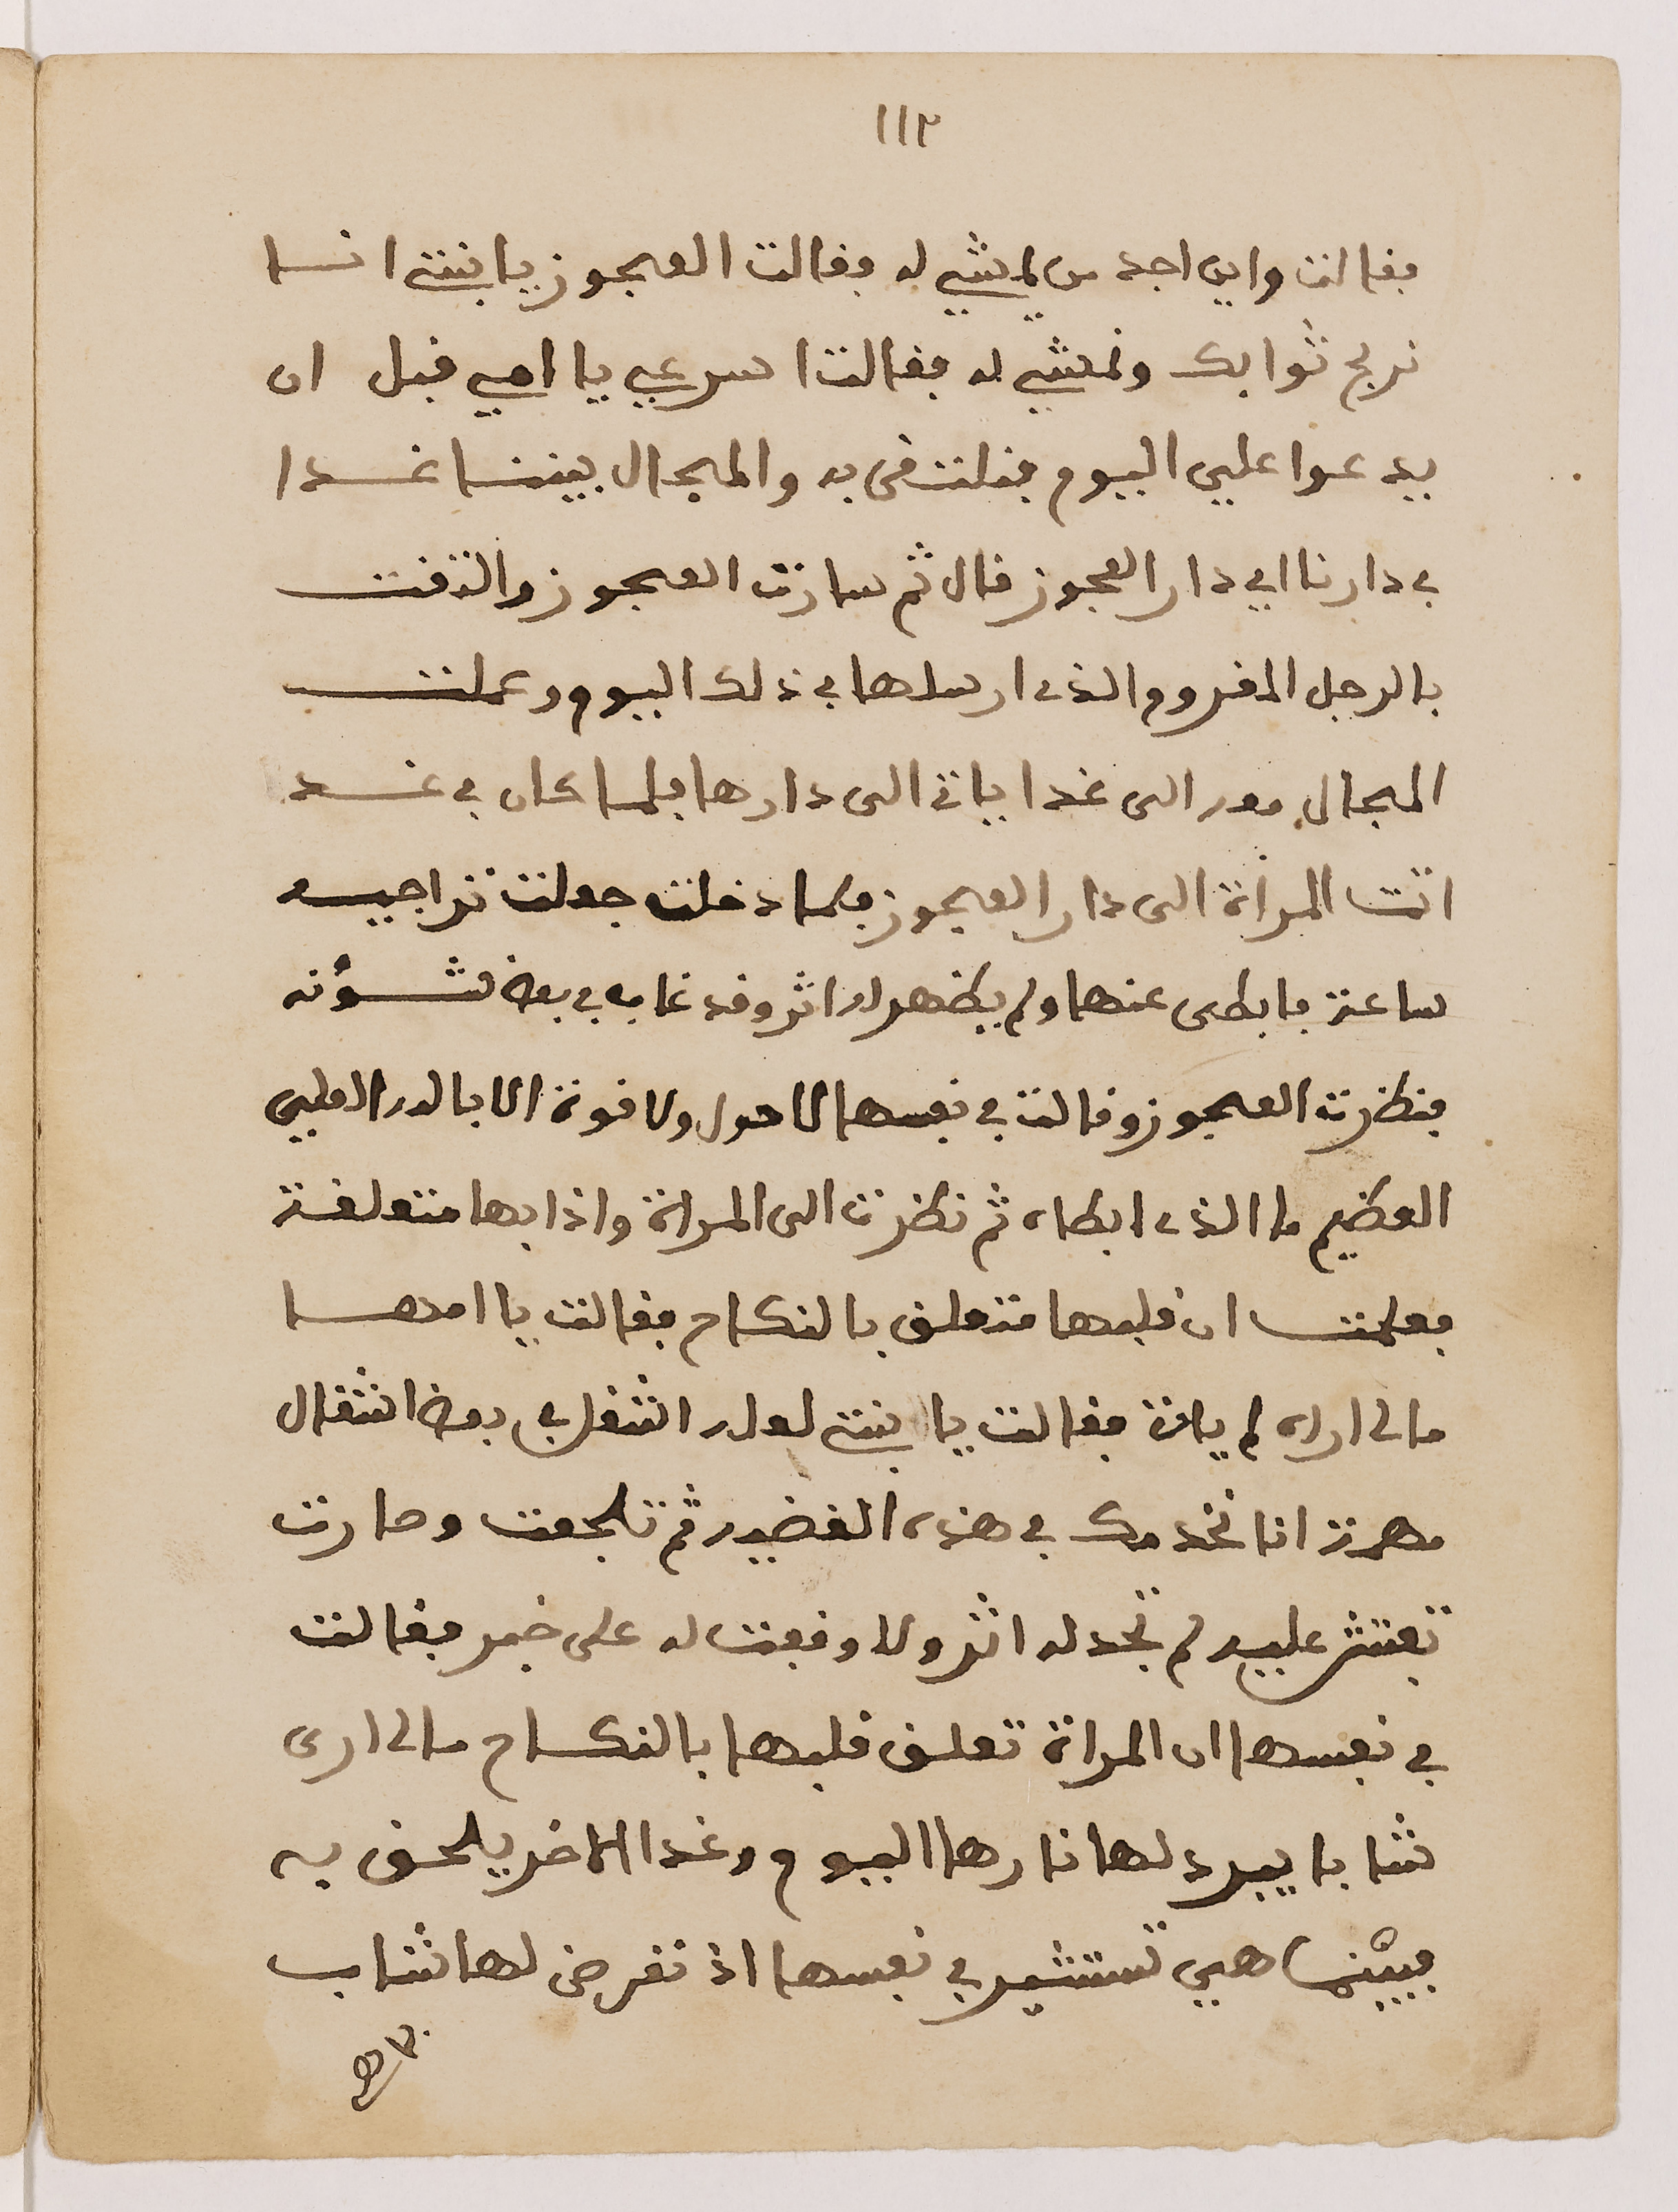 ١١٢
فقالت واين اجد من يمشي له فقالت العجوز يا بنتي انا
نربح ثوابك ونمشي له فقالت اسرعي يا امي قبل ان
يدعوا علي اليوم فنلتقى به والمجال بيننا غدا
في دارنا اي دار العجوز قال ثم سارت العجوز والتقت
بالرجل المغروم الذى ارسلها في ذلك اليوم وعملت
المجال معه الى غدا ياتى الى دارها فلما كان في غد
اتت المراة الى دار العجوز فلما دخلت جعلت تراجيه
ساعة فابطى عنها ولم يظهر له اثر وقد غاب في بعض شؤنه
فنظرت العجوز وقالت في نفسها لا حول ولا قوة الا بالله العلي
العظيم ما الذى ابطاه ثم نظرت الى المراة واذا بها متعلقة
فعلمت ان قلبها متعلق بالنكاح فقالت يا امها
مالى اراه لم يات فقالت يا بنتي لعله اشتغل في بعض اشغال
مهمة انا نخدمك في هذه القضيه ثم تلجعت وصارت
تفتش عليه لم تجد له اثر ولا وقعت له على خبر فقالت
في نفسها ان المراة تعلق قلبها بالنكاح مالى ارى
شابا يبرد لها نارها اليوم وغدا الاخر يلحق به
فبينما هي تستشير في نفسها اذ تعرض لها شاب